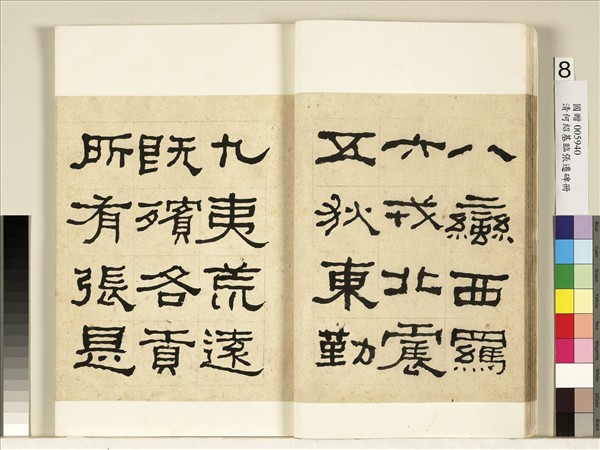 八蠻西羈
六戎北震
五狄東勤
九夷荒遠
既殯各貢
所有張是
8
國贈 005940
清何紹基臨張遷碑冊